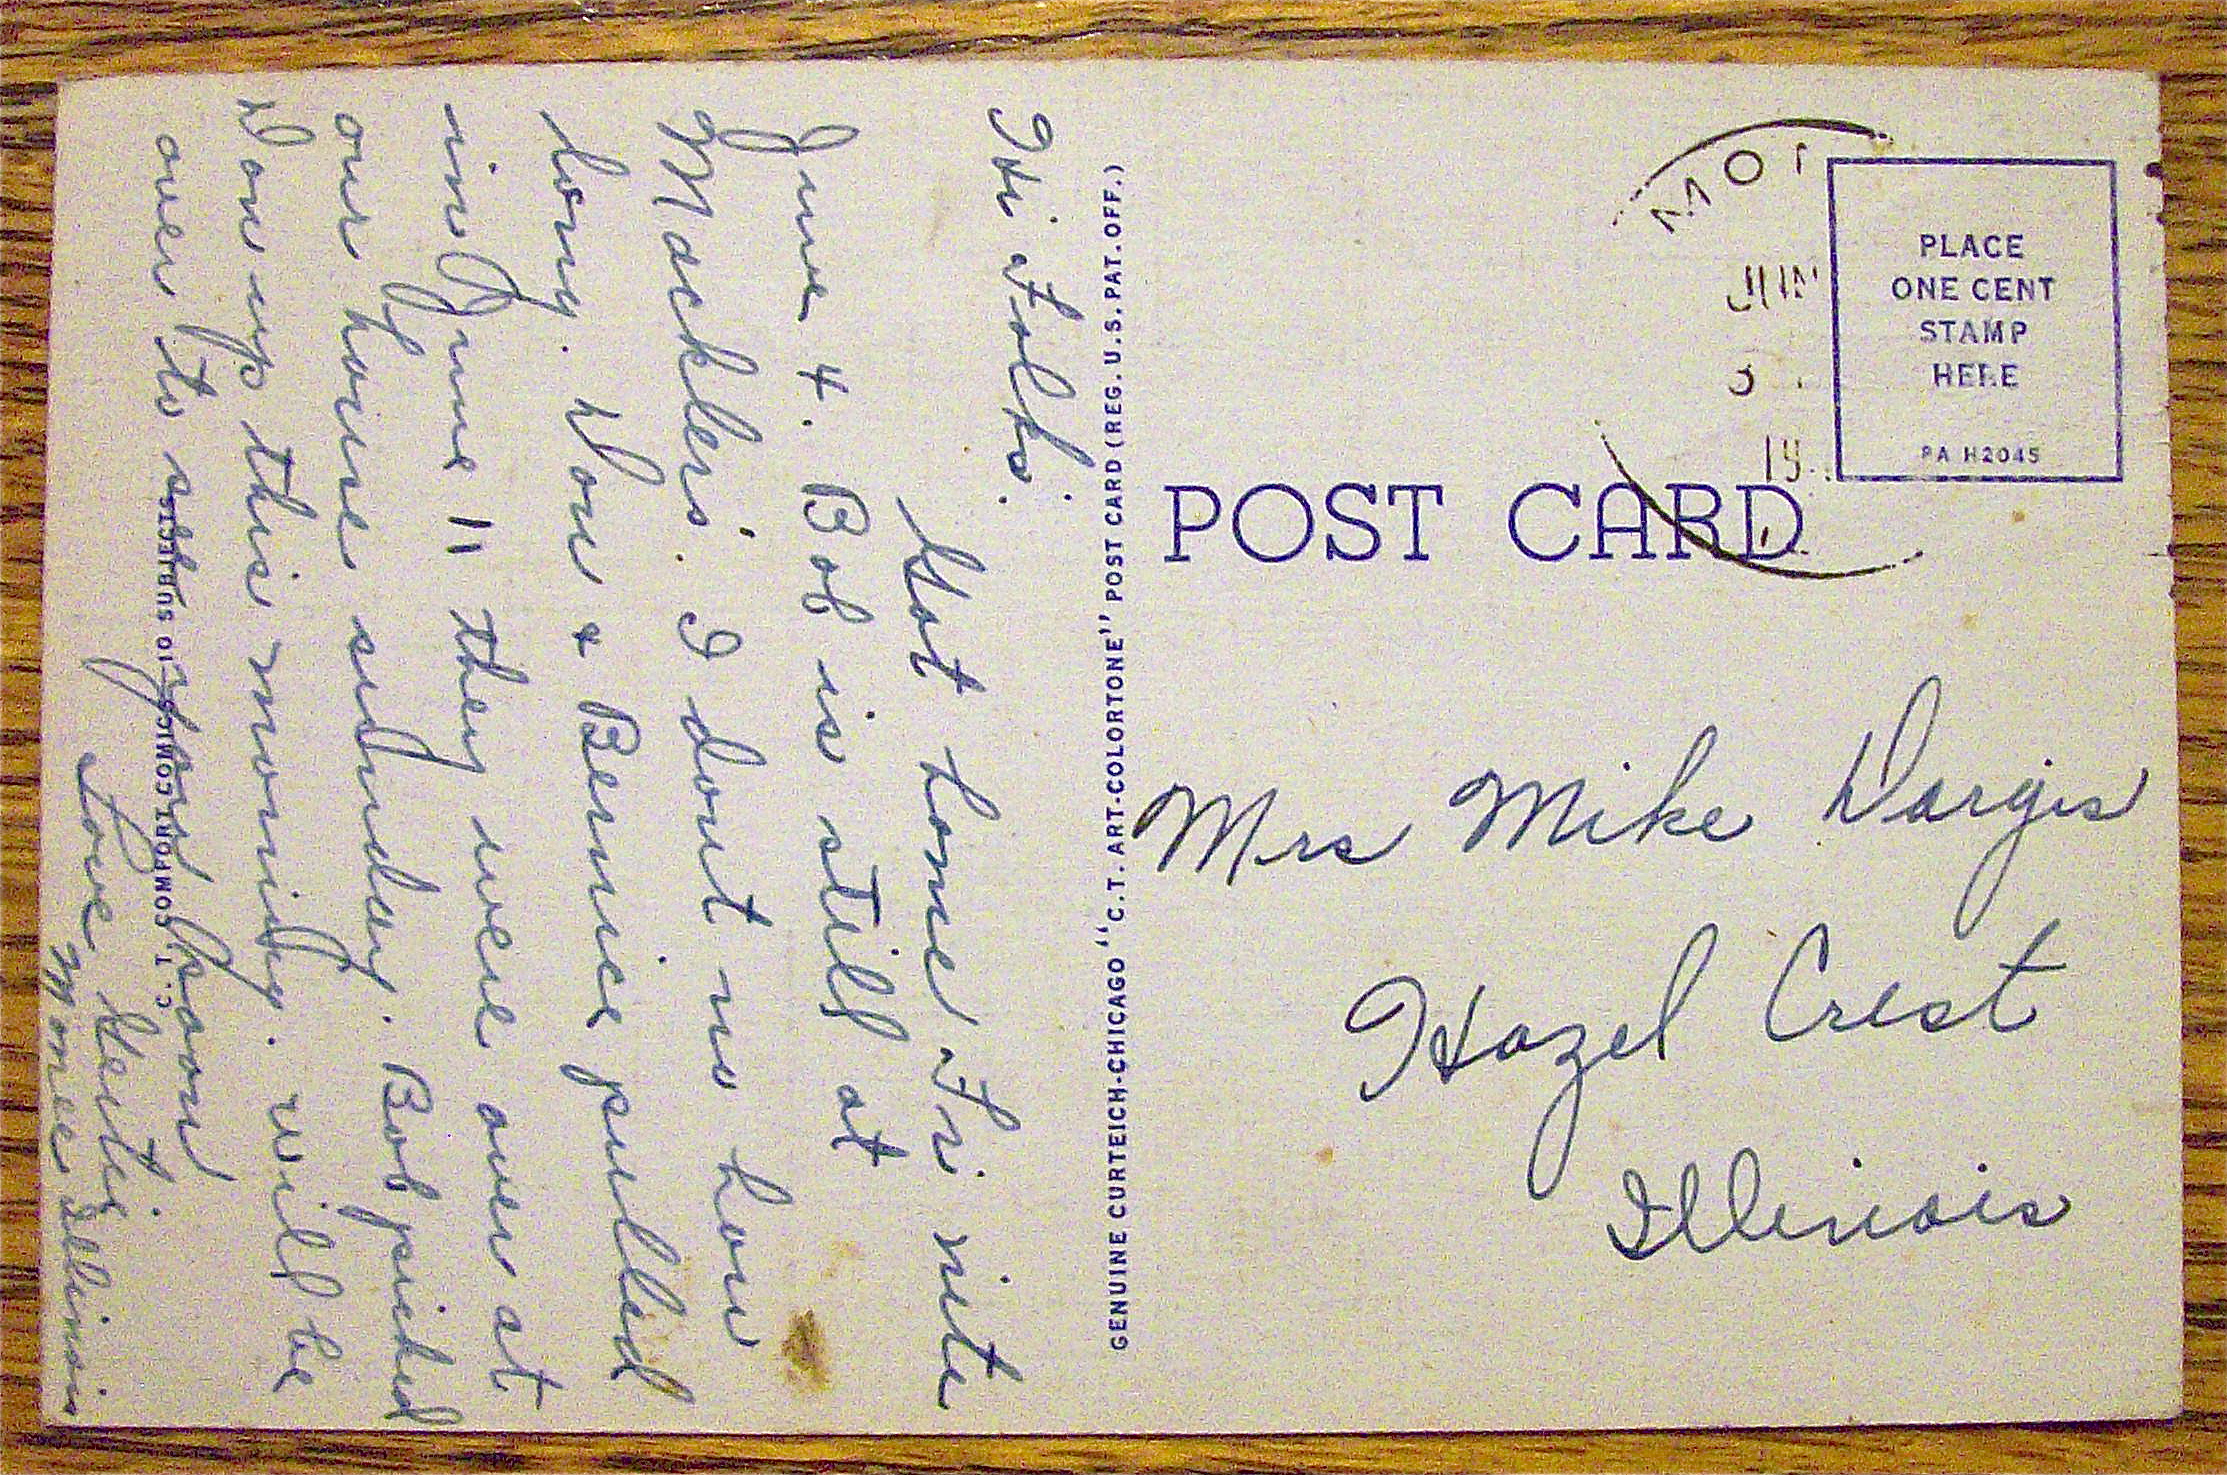 Hi Folks.
Got home Fri nite
June 4. Bob is still at
Macklers. I dont no how
long. Don & Bernice pulled
in June 11 they were over at
our house sunday. Bob picked
Don up this morning. will be
over to see you soon
Love
Monee Illinois
C.T. COMFORT COMICS-10 SUBJECTS
GENUINE CURTEICH-CHICAGO "C.T. ART-COLORTONE" POST CARD (REG. U.S. PAT. OFF.)
POST CARD
MO
JUN
19
PLACE
ONE CENT
STAMP
HERE
PA H2045
Mrs Mike Dargis
Hazel Crest
Illinois